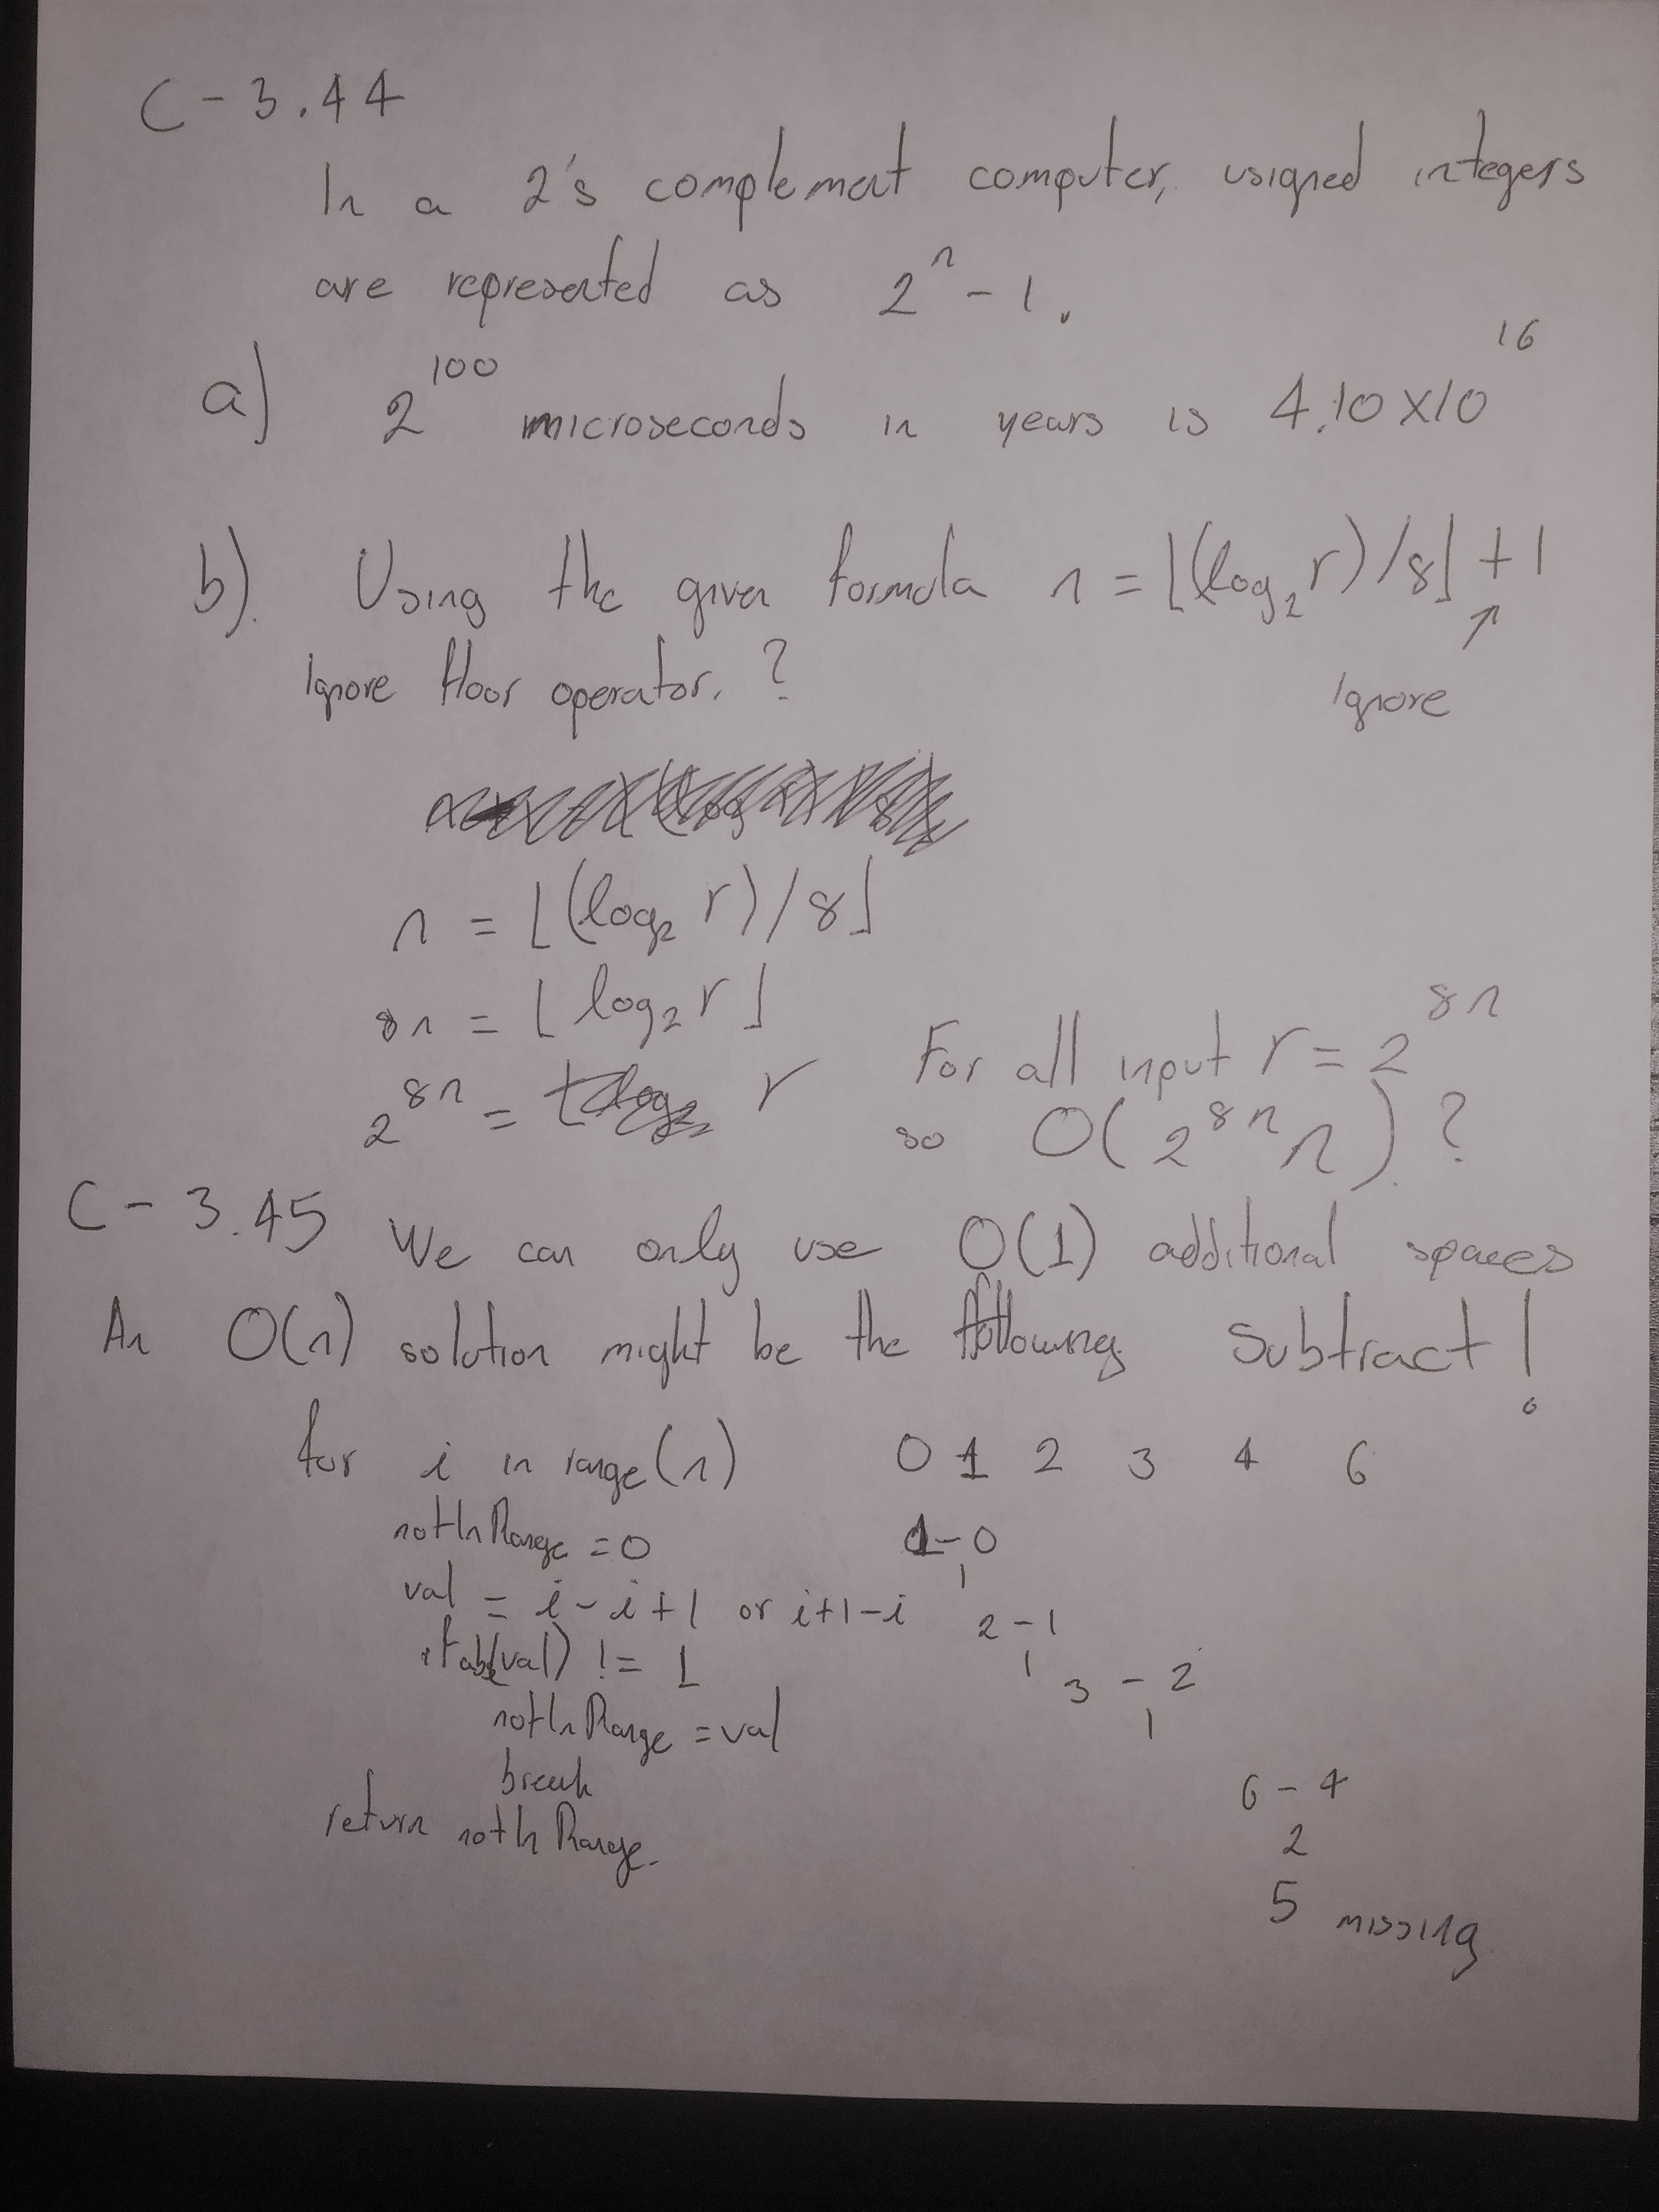 C-3.44
In a 2's complement computer, usigned integers
are represented as 2^n - 1.
a) 2^100 microseconds in years is 4.10 x 10^16
b). Using the given formula n = ⌊(log₂ r)/8⌋ + 1
↑
Ignore floor operator. ? Ignore
n = ⌊(log₂ r)/8⌋
8n = ⌊log₂ r⌋
2^8n = r
For all input r = 2^8n
so O(2^8n n) ?
C-3.45 We can only use O(1) additional spaces
An O(n) solution might be the following Subtract!
for i in range(n)
notInRange = 0
val = i - i+1 or i+1-i
if abs(val) != 1
notInRange = val
break
return notInRange.
0 1 2 3 4 6
1-0
1
2-1
1
3-2
1
6-4
2
5 missing